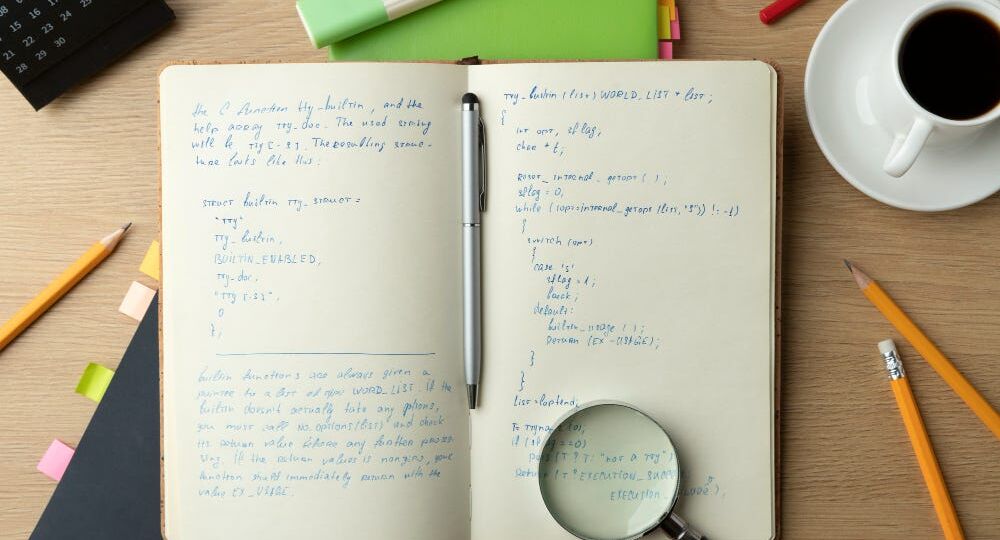 08
15 16 17
21 22 23 24 25
28 29 30
the C function tty_builtin, and the
help array tty_doc. The used string
will be tty [-s]. The resulting struc-
ture looks like this:
struct builtin tty_struct =
"tty"
tty_builtin,
BUILTIN_ENABLED,
tty-doc,
"tty [-s]",
0
};
builtin functions are always given a
pointer to a list of type WORD_LIST. If the
builtin doesn't actually take any options,
you must call no_options(list) and check
its return value before any further proces-
sing. If the return values is nonzero, your
function must immediately return with the
value EX_USAGE.
tty_builtin (list) WORLD_LIST * list;
{
int opt, sflag;
char * t;
reset_internal_getopt ( );
sflag = 0,
while ((opt=internal_getopt (list, "s")) != -1)
{
switch (opt)
{
case 's'
sflag = 1;
break;
default:
builtin_usage ( );
return (EX-USAGE);
}
}
list=loptend;
if (sflag ==0)
puts (t ? t: "not a tty")
return (t ? EXECUTION_SUCC
EXECUTION_